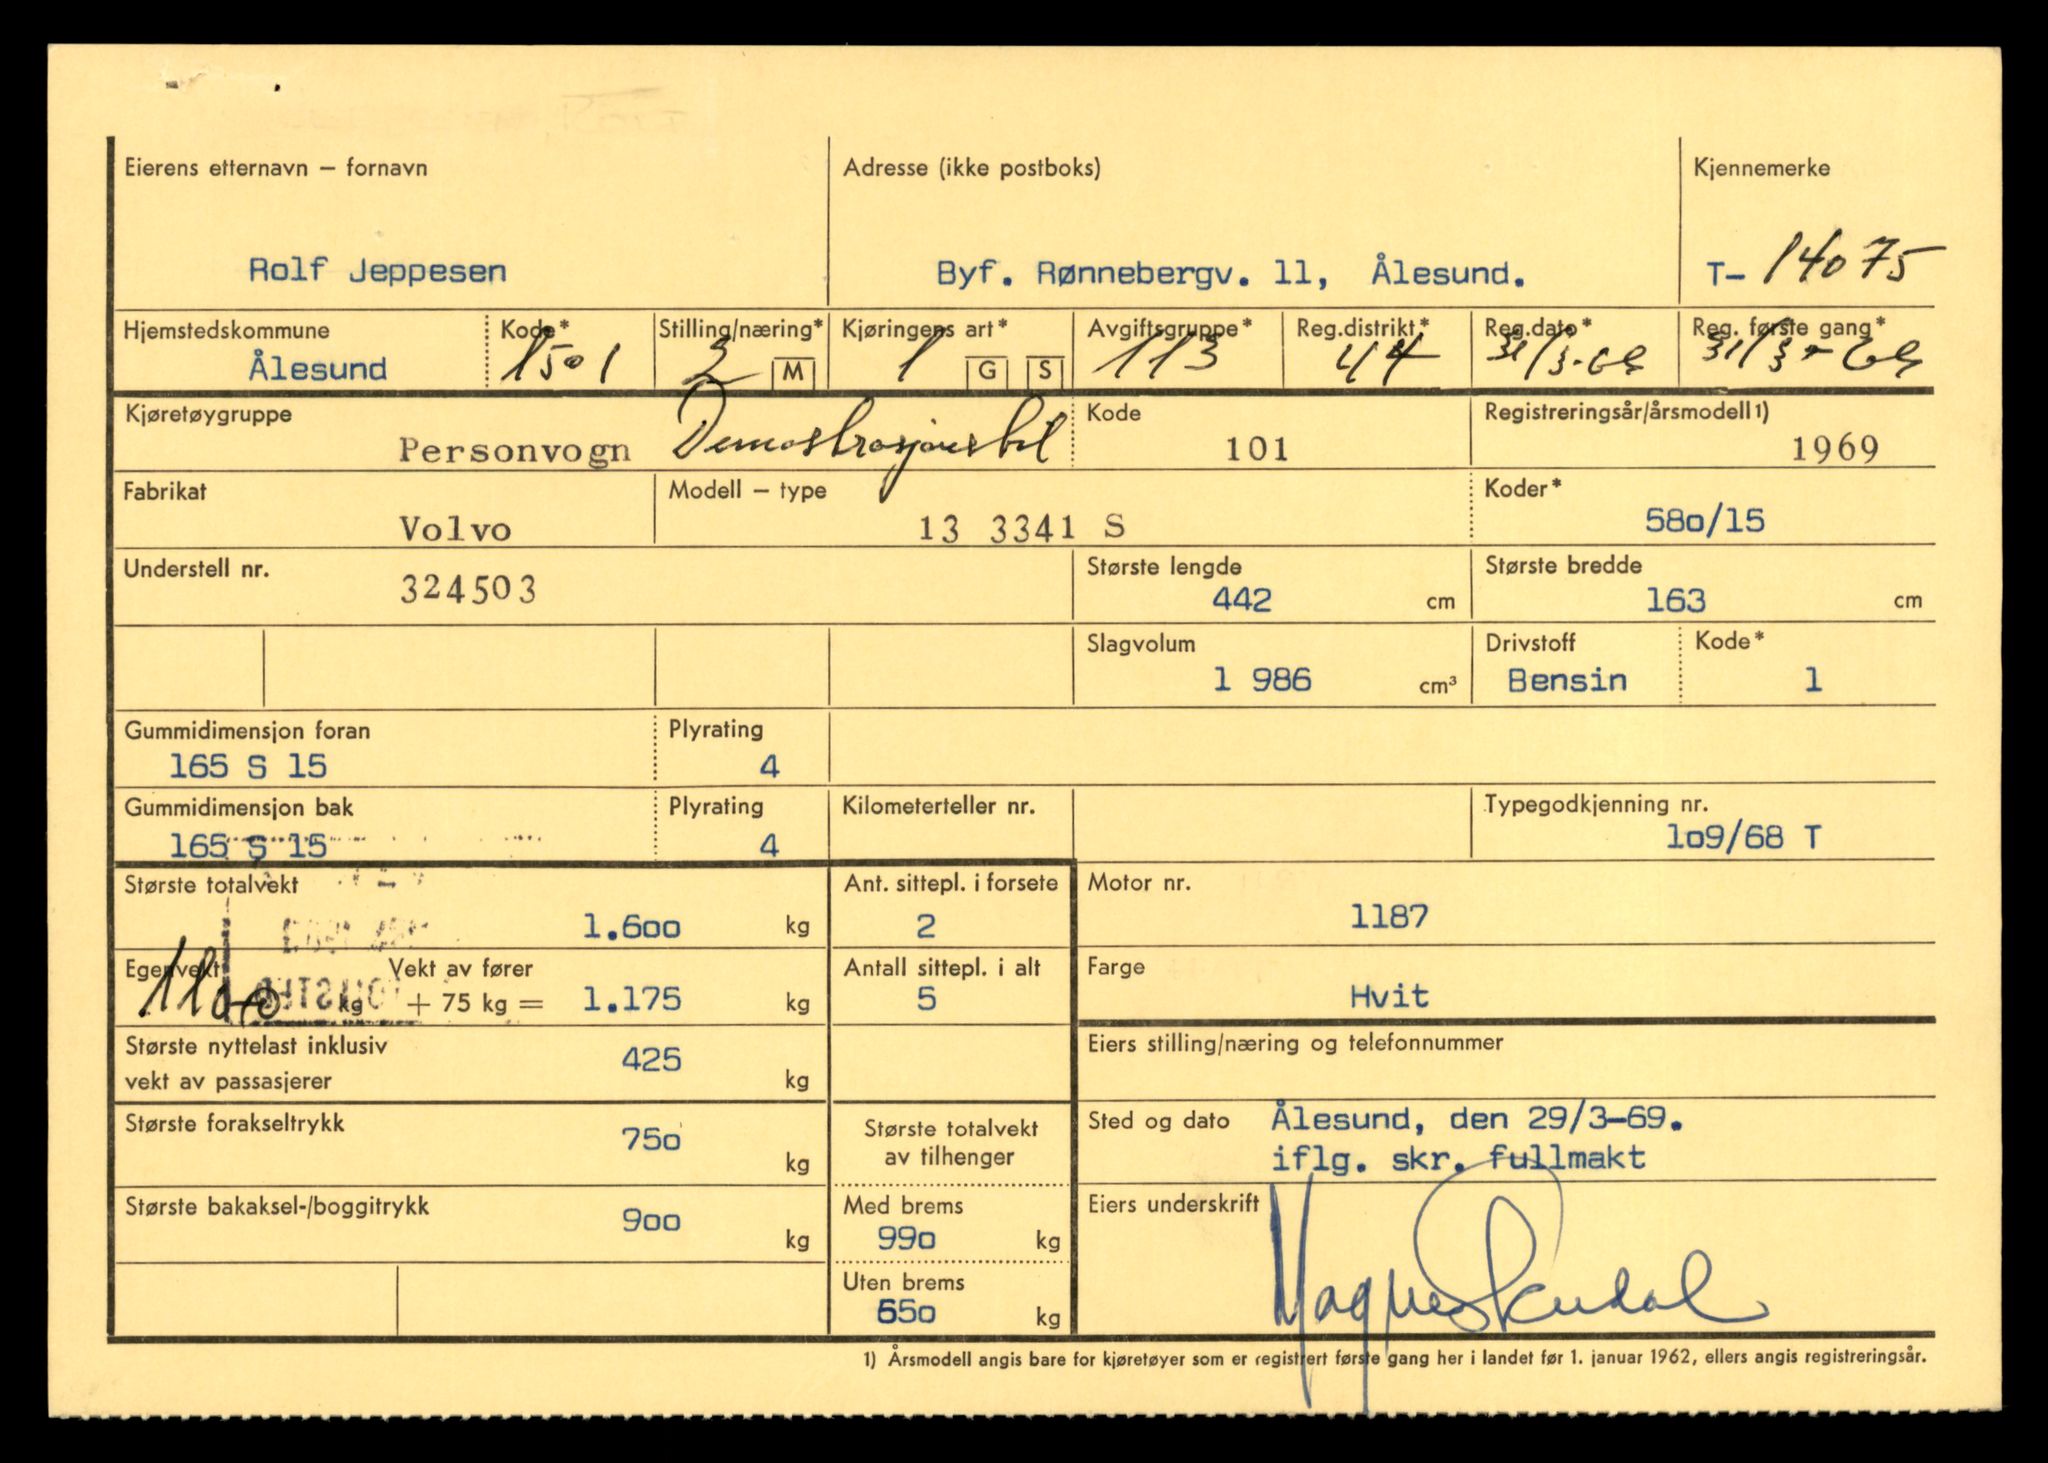 Eierens etternavn – fornavn Adresse (ikke postboks) Kjennemerke
Rolf Jeppesen Byf. Rønnebergv. 11, Ålesund. T- 14075
Hjemstedskommune Kode* Stilling/næring* Kjøringens art* Avgiftsgruppe* Reg.distrikt* Reg.dato* Reg. første gang*
Ålesund 1501 2 M 1 G S 113 44 31/3-69 31/3-69
Kjøretøygruppe Kode Registreringsår/årsmodell1)
Personvogn Demostrasjonsbil 101 1969
Fabrikat Modell – type Koder*
Volvo 13 3341 S 580/15
Understell nr. Største lengde Største bredde
324503 442 cm 163 cm
Slagvolum Drivstoff Kode*
1 986 cm³ Bensin 1
Gummidimensjon foran Plyrating
165 S 15 4
Gummidimensjon bak Plyrating Kilometerteller nr. Typegodkjenning nr.
165 S 15 4 109/68 T
Største totalvekt Ant. sittepl. i forsete Motor nr.
1.600 kg 2 1187
Egenvekt Vekt av fører Antall sittepl. i alt Farge
1100 kg + 75 kg = 1.175 kg 5 Hvit
Største nyttelast inklusiv Eiers stilling/næring og telefonnummer
vekt av passasjerer 425 kg
Største forakseltrykk 750 kg Største totalvekt Sted og dato Ålesund, den 29/3-69.
av tilhenger iflg. skr. fullmakt
Største bakaksel-/boggitrykk 900 kg Med brems Eiers underskrift
990 kg
Uten brems
650 kg
1) Årsmodell angis bare for kjøretøyer som er registrert første gang her i landet før 1. januar 1962, ellers angis registreringsår.